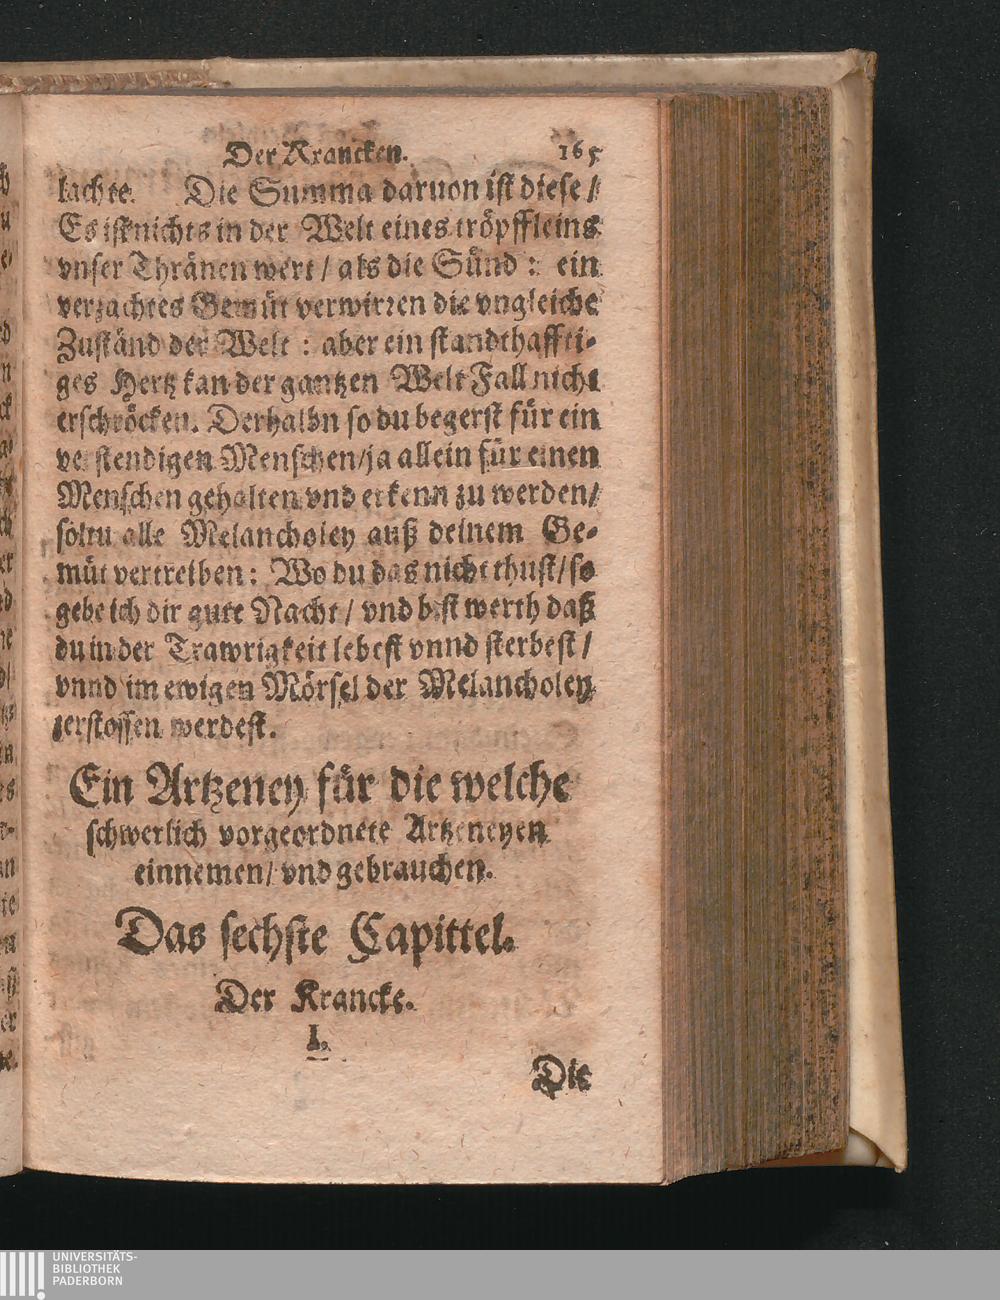 Der Krancken. 165
lachte. Die Summa daruon ist diese /
Es ist nichts in der Welt eines tröpffleins
vnser Thränen wert / als die Sünd : ein
verzachtes Gemüt verwirren die vngleiche
Zuständ der Welt : aber ein standthaffti-
ges Hertz kan der gantzen Welt Fall nicht
erschröcken. Derhalbn so du begerst für ein
verstendigen Menschen / ja allein für einen
Menschen gehalten vnd erkenn zu werden /
soltu alle Melancholey auß deinem Ge-
müt vertreiben : Wo du das nicht thust / so
gebe ich dir gute Nacht / vnd bist werth daß
du in der Trawrigkeit lebest vnnd sterbest /
vnnd im ewigen Mörsel der Melancholey
zerstossen werdest.
Ein Artzeney für die welche
schwerlich vorgeordnete Artzeneyen
einnemen / vnd gebrauchen.
Das sechste Capittel.
Der Krancke.
I.
Die
UNIVERSITÄTS-
BIBLIOTHEK
PADERBORN